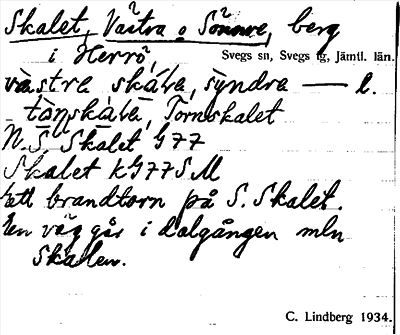 Skalet, Västra o Södra, berg
i Herrö, Svegs sn, Svegs tg, Jämtl. län.
västre skálẹ, syndre — l.
tånskálẹ, Tornskalet
N. S. Skalet G77
Skalet KG77SM
Ett brandtorn på S. Skalet.
En väg går i dalgången mln
Skalen.
C. Lindberg 1934.